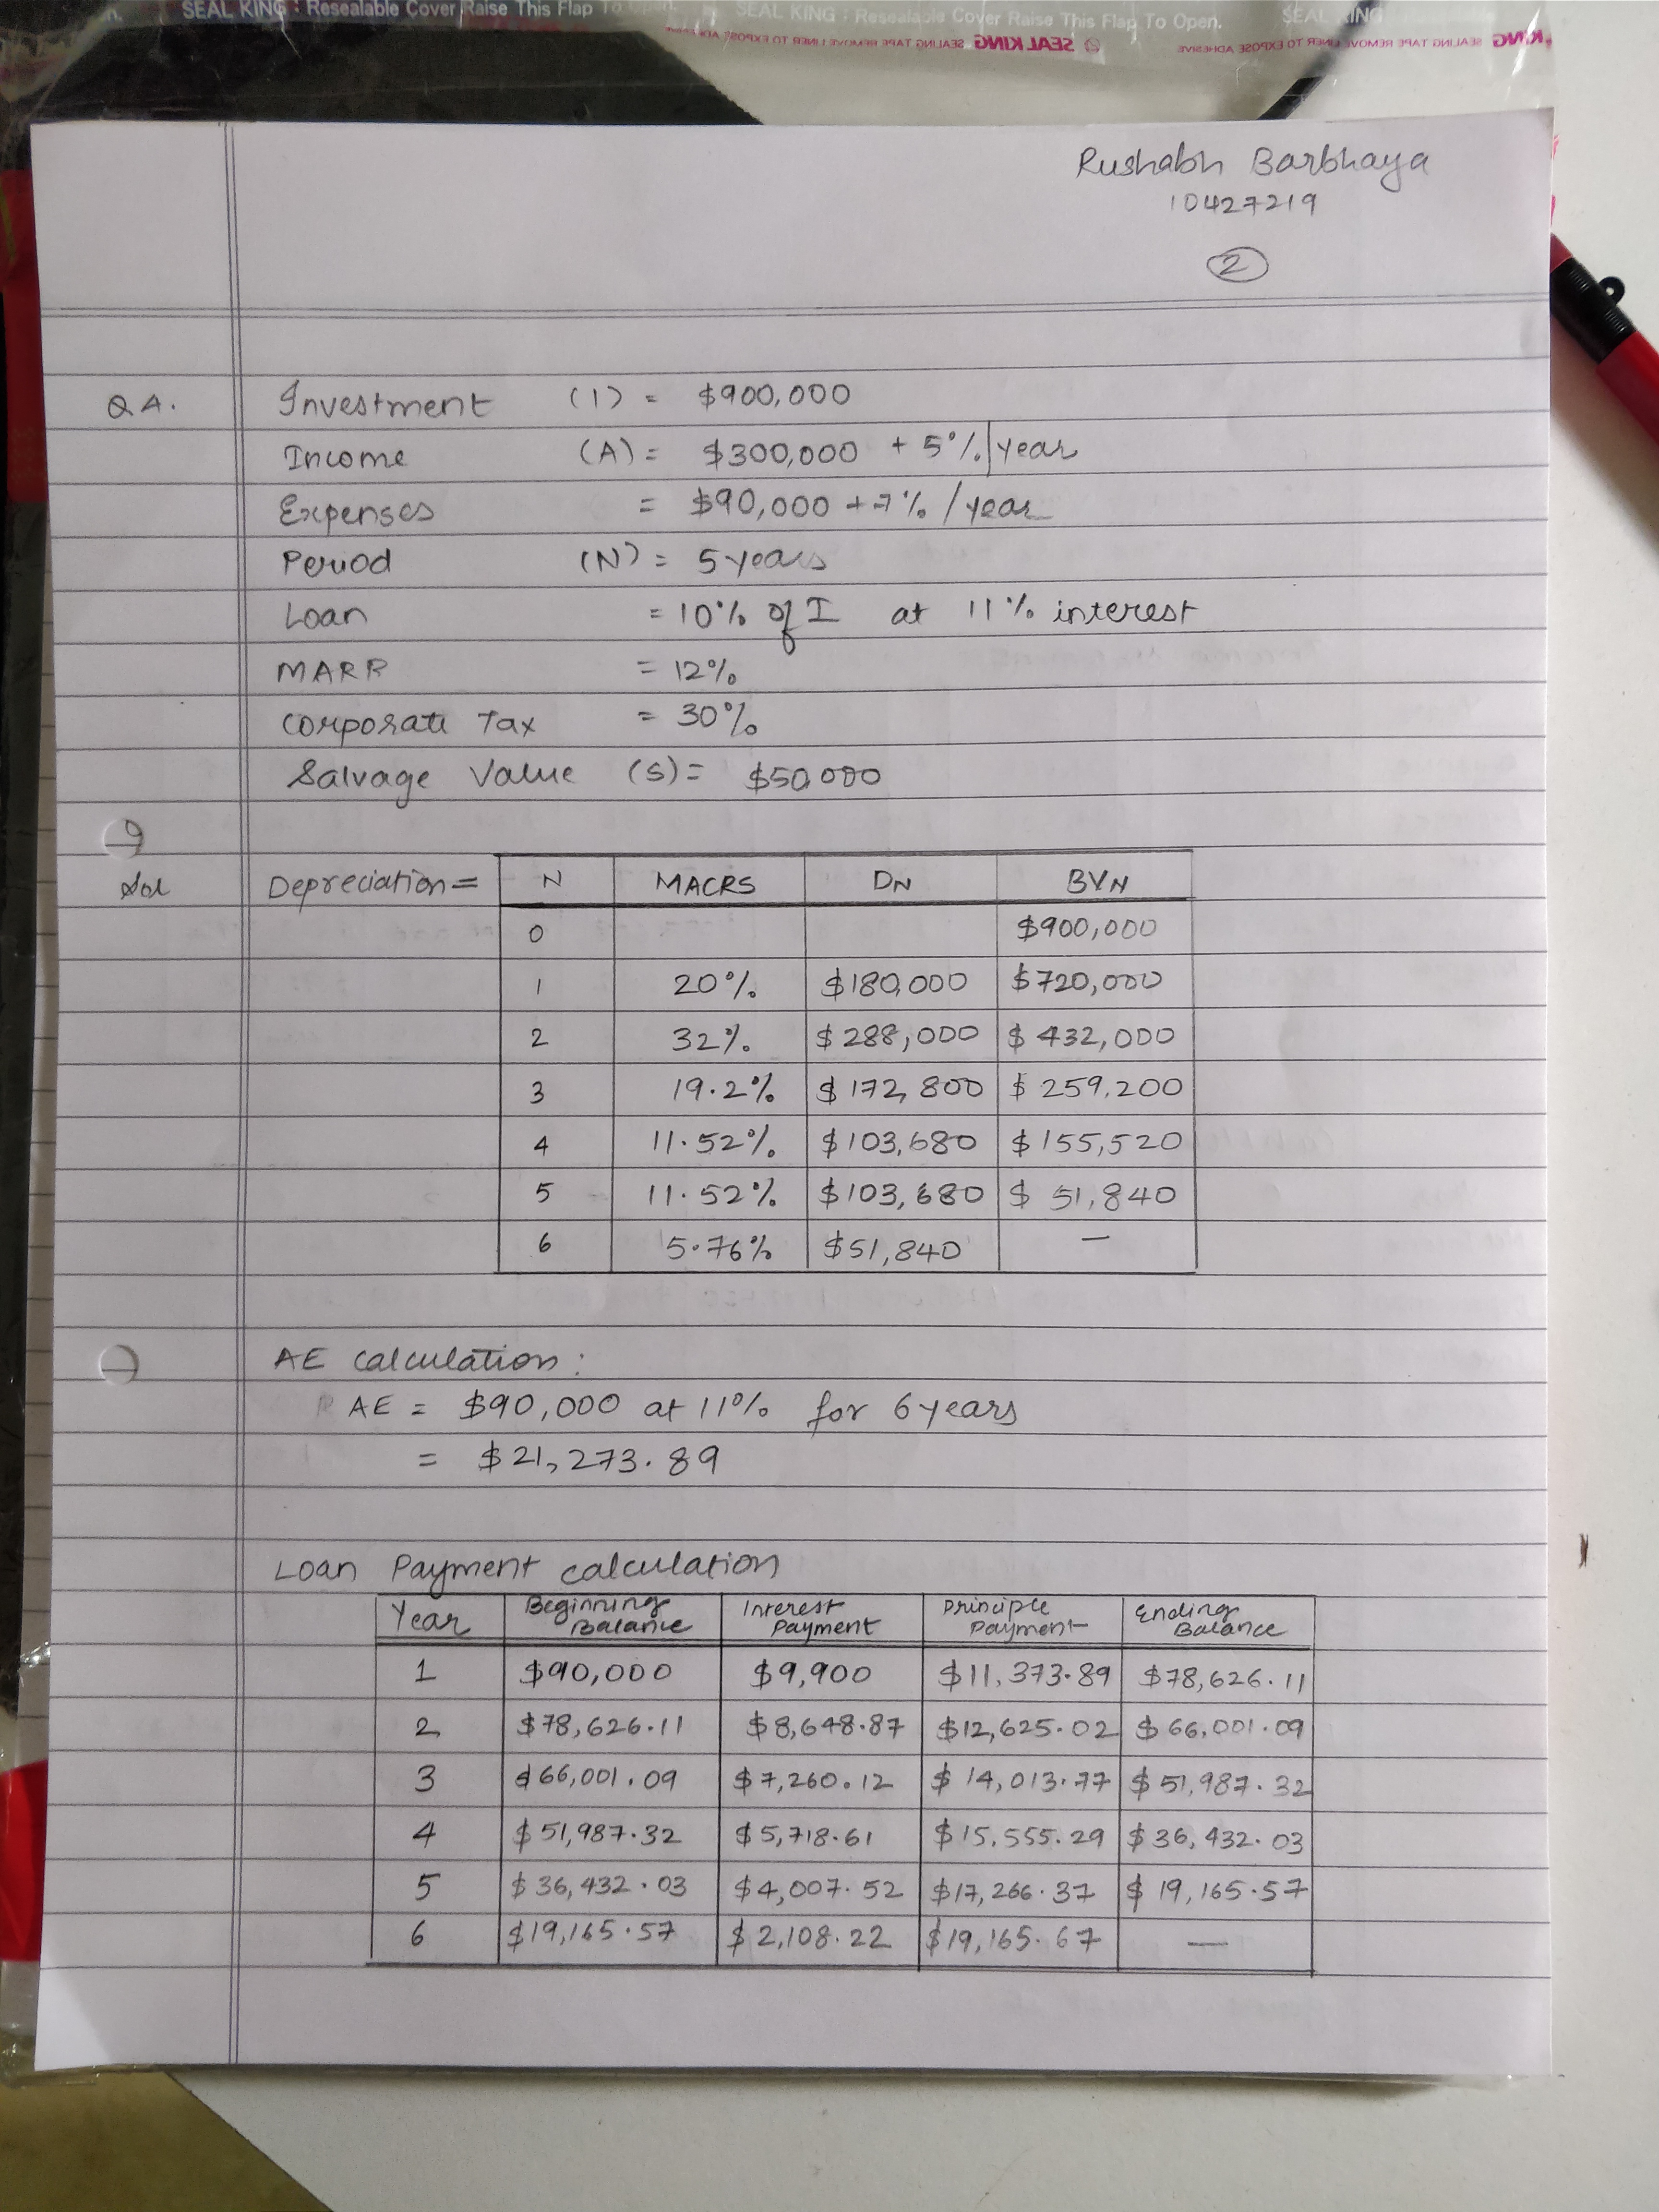 SEAL KING : Resealable Cover Raise This Flap To Open.
SEAL KING : Resealable Cover Raise This Flap To Open.
SEAL KING
SEAL KING SEALING TAPE REMOVE LINER TO EXPOSE
SEALING TAPE REMOVE LINER TO EXPOSE ADHESIVE
Rushabh Barbhaya
10427219
2
Q4. Investment (I) = $900,000
Income (A) = $300,000 + 5%/year
Expenses = $90,000 + 7% / year
Period (N) = 5 years
Loan = 10% of I at 11% interest
MARR = 12%
Corporate Tax = 30%
Salvage Value (S) = $50,000
Sol Depreciation = N MACRS DN BVN
0 $900,000
1 20% $180,000 $720,000
2 32% $288,000 $432,000
3 19.2% $172,800 $259,200
4 11.52% $103,680 $155,520
5 11.52% $103,680 $51,840
6 5.76% $51,840 —
AE calculation :
AE = $90,000 at 11% for 6 years
= $21,273.89
Loan Payment calculation
Year Beginning Balance Interest Payment Principle Payment Ending Balance
1 $90,000 $9,900 $11,373.89 $78,626.11
2 $78,626.11 $8,648.87 $12,625.02 $66,001.09
3 $66,001.09 $7,260.12 $14,013.77 $51,987.32
4 $51,987.32 $5,718.61 $15,555.29 $36,432.03
5 $36,432.03 $4,007.52 $17,266.37 $19,165.57
6 $19,165.57 $2,108.22 $19,165.67 —